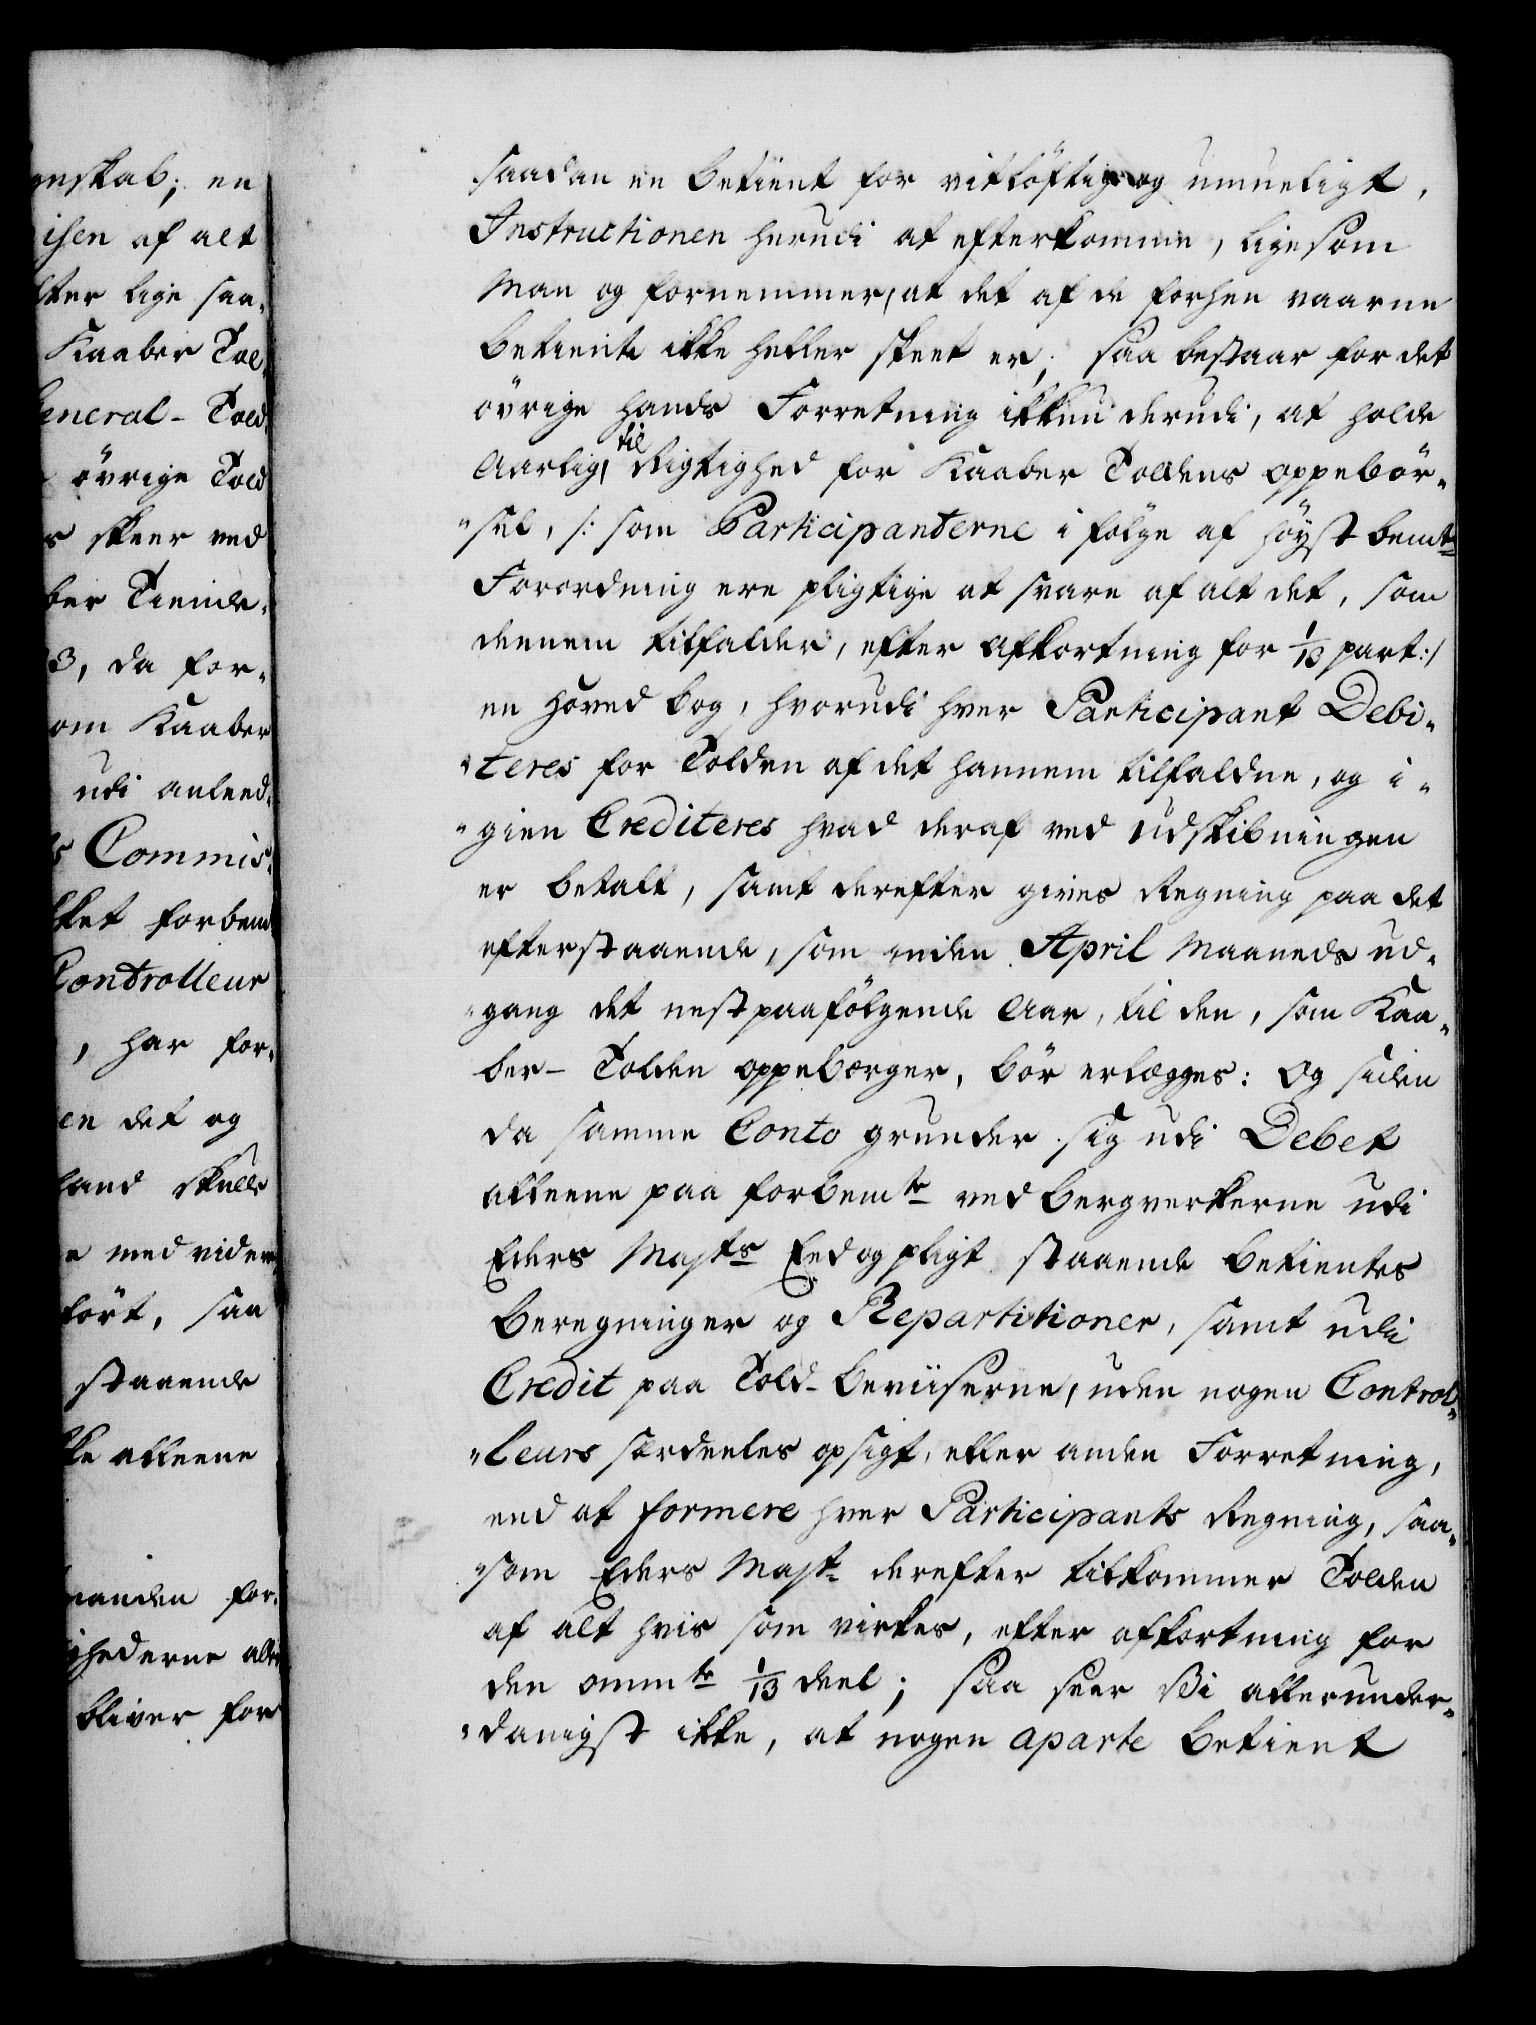 enskab; en
isen af alt
ter lige saa-
Kaaber Tol-
General-Told
övrige Told
skeer ved
ber Tiende-
3, da for-
om Kaaber
udi anleed-
Commis-
ket forbem
Controlleur
, har for-
en det og
land skulle
med videre
fört, saa
staaende
alleene
anden for-
hederne
bliver for
saadan en betient for vitlöftig og umueligt,
Instructionen herudi at efterkomme, ligesom
Man og fornemmer, at det af de forhen vaarne
betiente ikke heller skeet er; saa bestaar for det
övrige hands Forretning ikkun derudi, at holde
Aarlig, til Rigtighed for Kaaber Toldens oppebör-
"sel, /: som Participanterne i fölge af höyst bemte
Forordning ere pligtige at svare af alt det, som
dennem tilfalder, efter Afkortning for 1/13 part:/
en hoved bog, hvorudi hver Participant Debi-
"teres for Tolden af det hannem tilfaldne, og i-
"gien Crediteres hvad deraf ved Udskibningen
er betalt, samt derefter gives Regning paa det
efterstaaende, som inden April Maaneds ud-
"gang det nestpaafölgende Aar, til den, som Kaa-
ber-Tolden oppebærger, bör erlægges: Og siden
da samme Conto grunder sig udi Debet
alleene paa forbemte ved bergverkerne udi
Eders Majts Eed og pligt staaende betientes
beregninger og Repartitioner, samt udi
Credit paa Told-beviiserne, uden nogen Control-
"leurs særdeeles opsigt, eller anden Forretning,
end at formere hver Participants Regning, saa-
"som Eders Majt derefter tilkommer Tolden
af alt hvis som virkes, efter afkortning for
den ommte 1/13 deel; saa seer Vi allerunder-
"danigst ikke, at nogen aparte betient